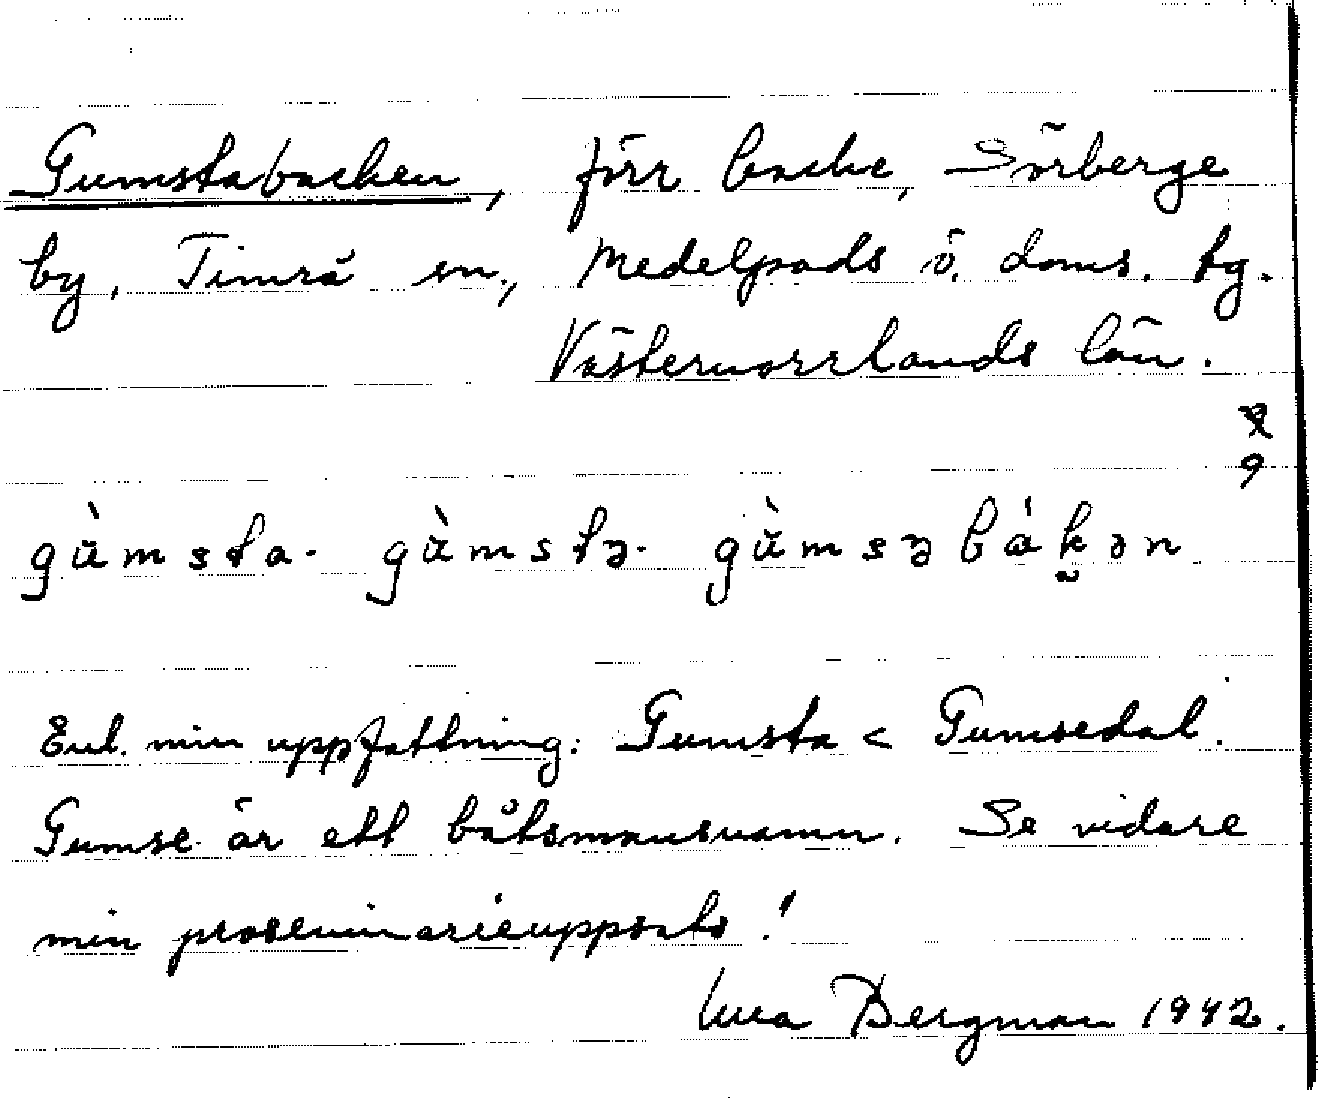 Gumstabacken, förr backe, Sörberge
by, Timrå sn., Medelpads ö. doms. tg.
Västernorrlands län.
g̀ùmsta- g̀ùmstə- g̀ùmsəbákən
Enl. min uppfattning: Gumsta < Gumsedal.
Gumse är ett båtsmansnamn. Se vidare
min proseminarieuppsats!
Bergman 1942.